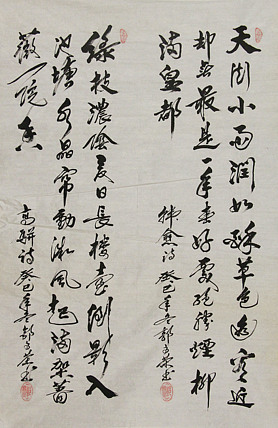 天街小雨潤如酥草色遥看近
却無最是一年春好處絕勝煙柳
滿皇都
韓愈詩癸巳年春
綠树濃陰夏日長樓臺倒影入
池塘水晶帘動微風起滿架薔
薇一院香
高駢詩癸巳年春